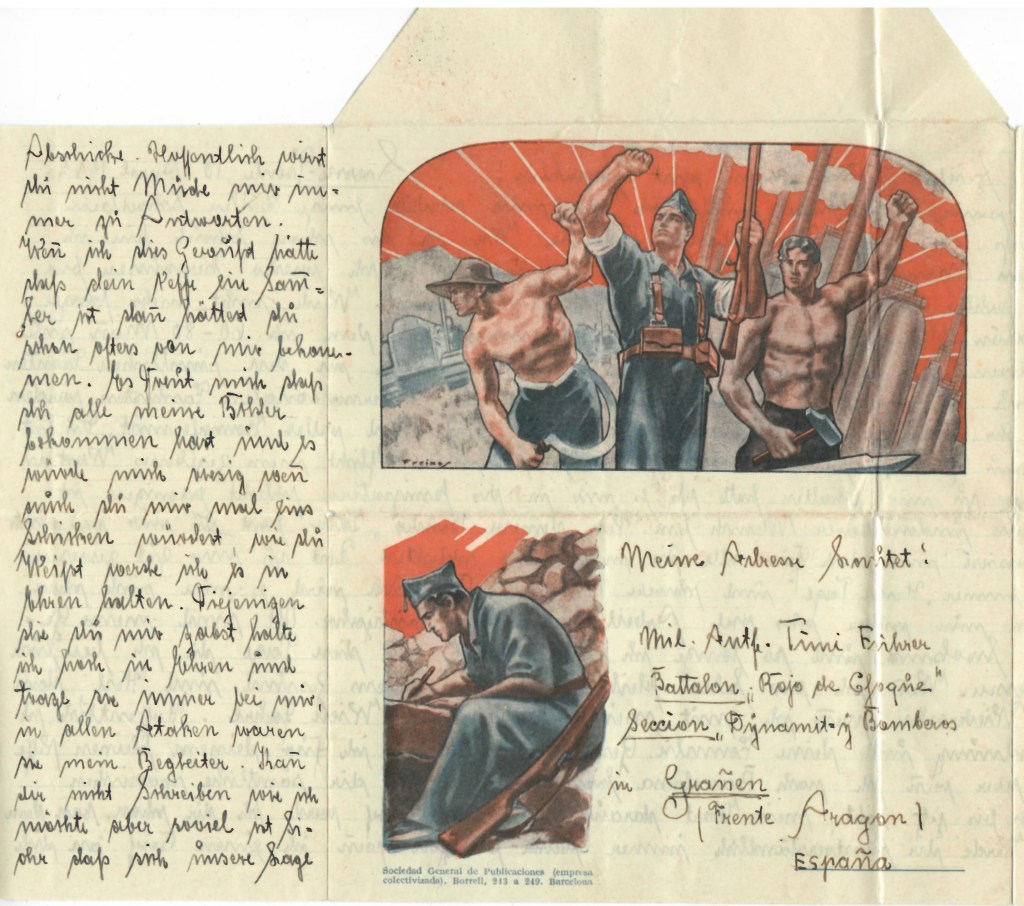 Abschicke. Hoffendlich wirst
du nicht Müde mir im-
mer zu Antworten.
Wen̄ ich dies Gewußt hätte
daß dein Neffe ein Sam̄-
ler ist dan̄ hättest du
schon öfters von mir bekom-
men. Es Freut mich daß
du alle meine Bilder
bekommen hast und es
würde mich riesig wen̄
auch du mir mal eins
Schicken würdest wie du
Weißt werde ich es in
Ehren halten. Diejenigen
die du mir gabst halte
ich hoch in Ehren und
trage sie immer bei mir,
in allen Ataken waren
sie mein Begleiter. Kan̄
dir nicht Schreiben wie ich
möchte aber soviel ist Si-
cher daß sich unsere Lage
Freixas
Meine Adresse Lautet!
Mil. Antf. Timi
Battalon „Rojo de Choque"
Seccion „Dynamit-y Bomberos
in Grañen
(Frente Aragon)
España
Sociedad General de Publicaciones (empresa
colectivizada). Borrell, 243 a 249. Barcelona